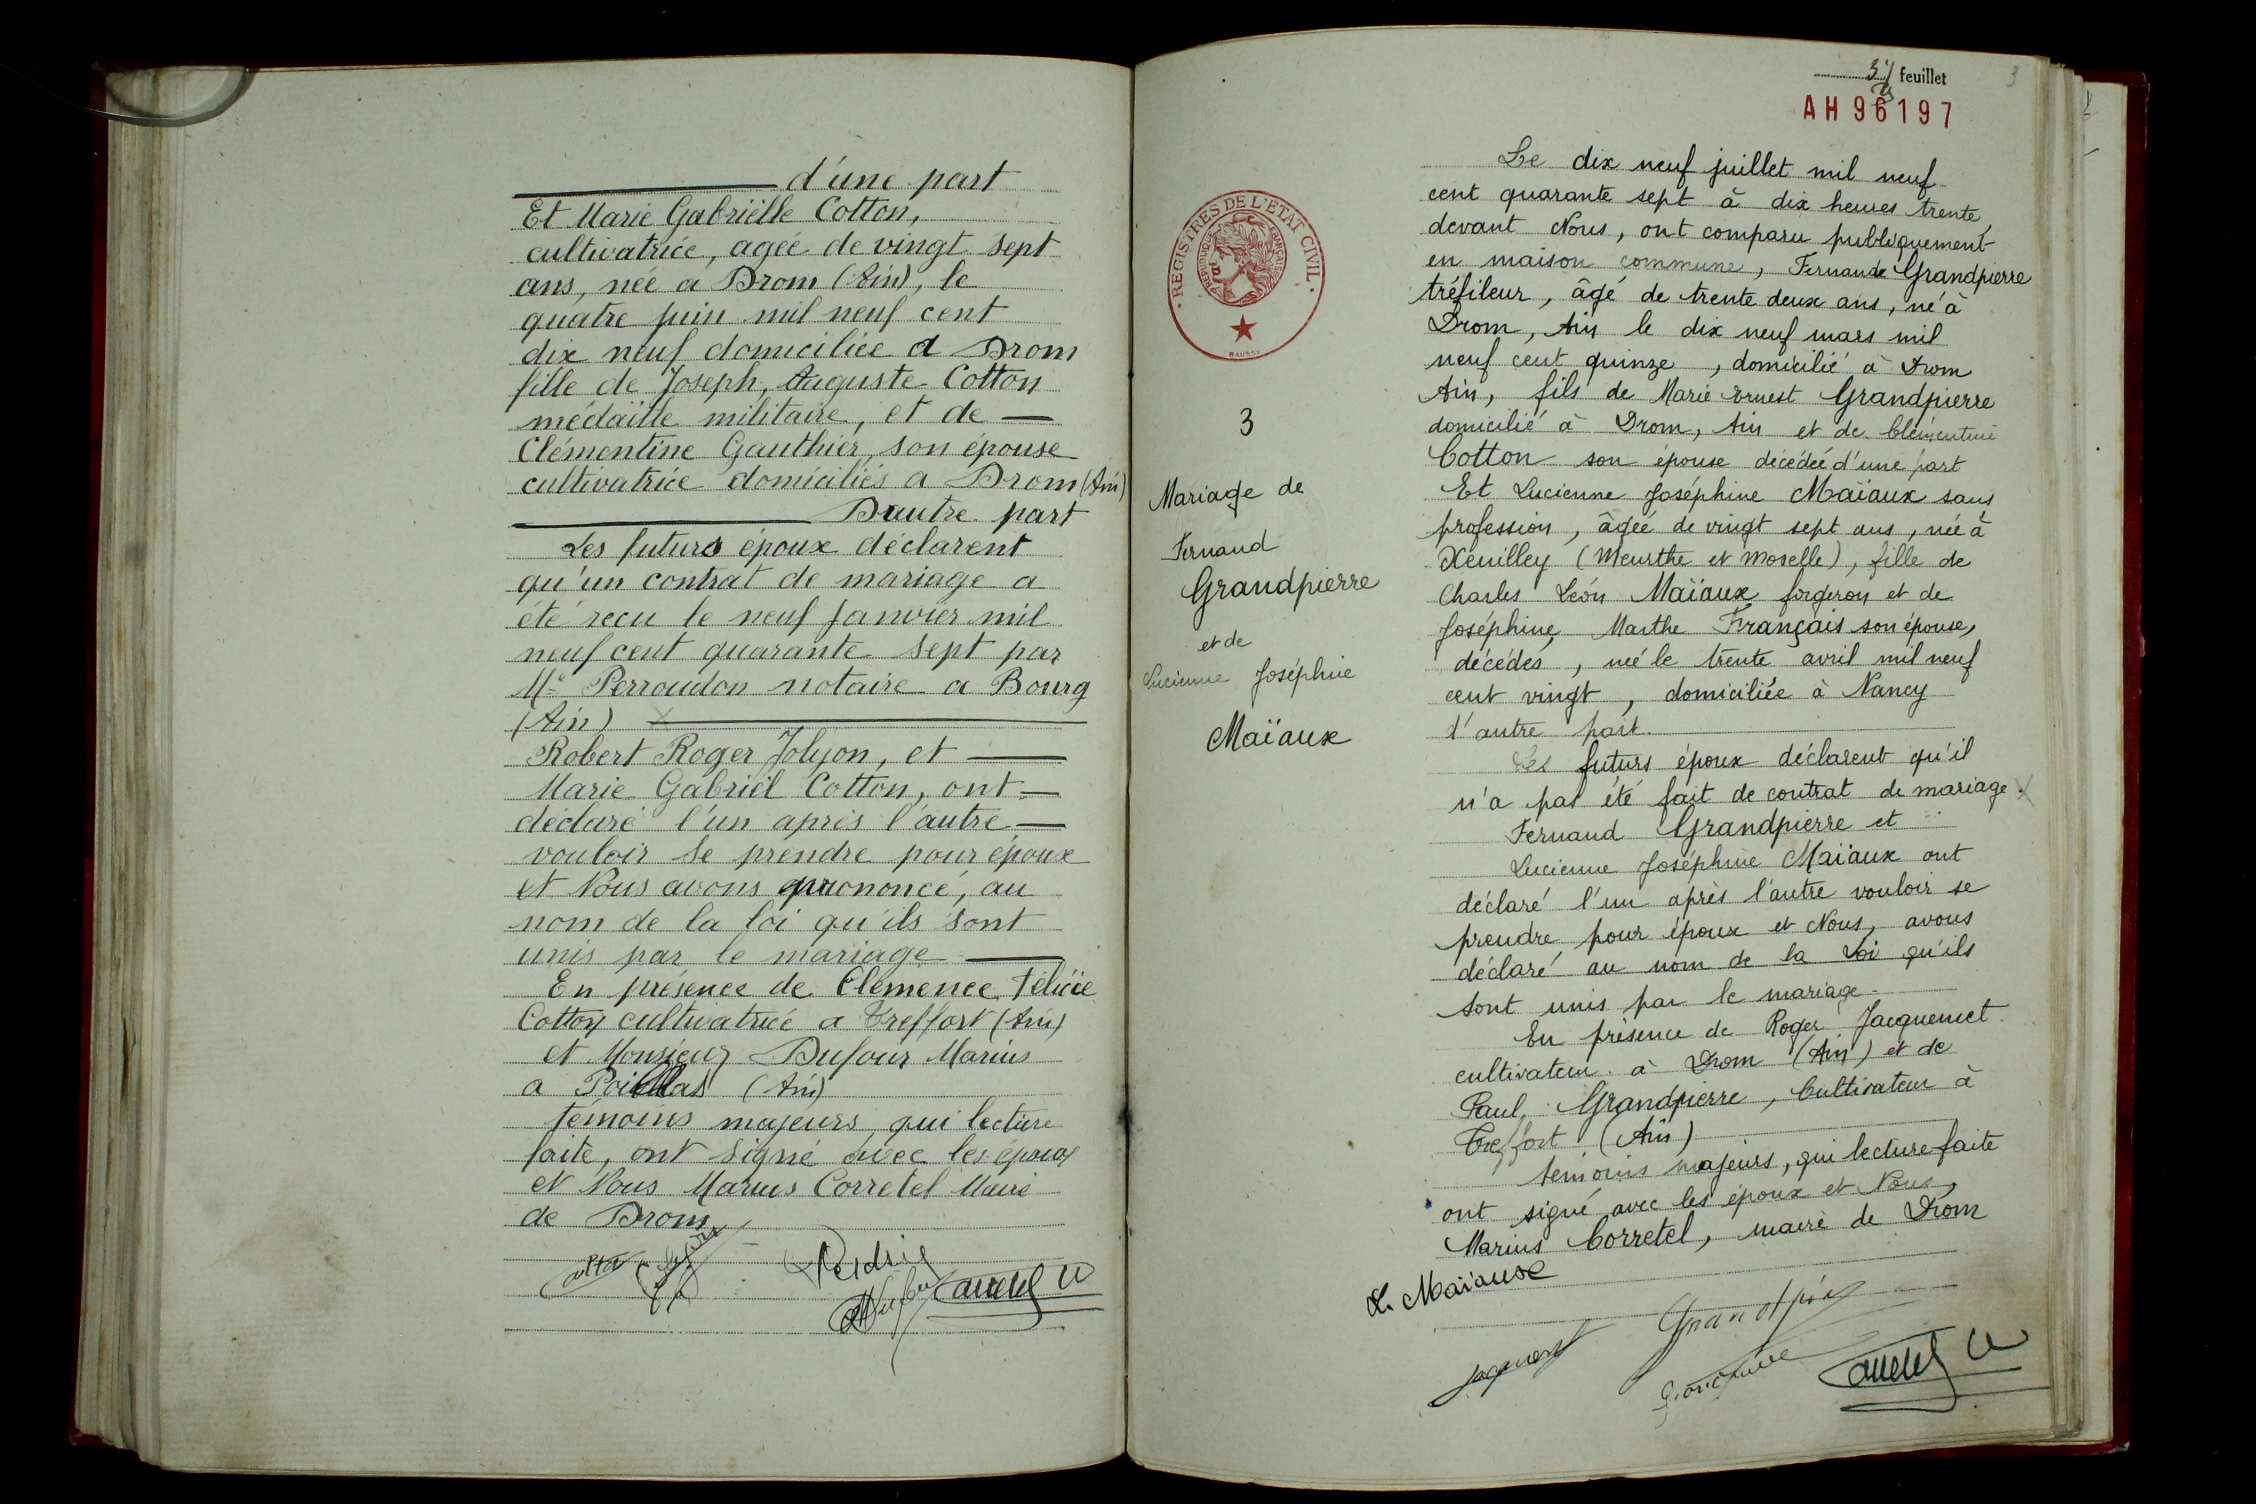 d'une part
Et Marie Gabriëlle Cotton,
cultivatrice, agée de vingt sept
ans, née a Drom (Ain), le
quatre juin mil neuf cent
dix neuf domiciliée a Drom
fille de Joseph, Auguste Cotton
médaille militaire, et de
Clémentine Gauthier, son épouse
cultivatrice domiciliés a Drom (Ain)
D'autre part
Les futurs époux déclarent
qu'un contrat de mariage a
été reçu le neuf Janvier mil
neuf cent quarante sept par
Me Perroudon notaire a Bourg
(Ain)
Robert Roger Jolyon, et
Marie Gabriel Cotton, ont
déclaré l'un après l'autre
vouloir se prendre pour époux
et Nous avons prononcé, au
nom de la loi qu'ils sont
unis par le mariage
En présence de Clémence Félicie
Cotton cultivatrice a Treffort (Ain)
et Monsieur Dufour Marius
a (Ain)
témoins majeurs, qui lecture
faite, ont signé avec les époux
et Nous Marius Corretel Maire
de Drom
3 feuillet
3
AH 96197
REGISTRES DE L'ETAT CIVIL
REPUBLIQUE FRANÇAISE
3
Mariage de
Fernand
Grandpierre
et de
Lucienne Joséphine
Maïaux
Le dix neuf juillet mil neuf
cent quarante sept à dix heures trente
devant Nous, ont comparu publiquement
en maison commune, Fernand Grandpierre
tréfileur, âgé de trente deux ans, né à
Drom, Ain le dix neuf mars mil
neuf cent quinze, domicilié à Drom
Ain, fils de Marie Ernest Grandpierre
domicilié à Drom, Ain et de Clémentine
Cotton son épouse décédée d'une part
Et Lucienne Joséphine Maïaux sans
profession, âgée de vingt sept ans, née à
Xeuilley (Meurthe et Moselle), fille de
Charles Léon Maïaux forgeron et de
Joséphine Marthe Français son épouse,
décédés, née le trente avril mil neuf
cent vingt, domiciliée à Nancy
d'autre part.
Les futurs époux déclarent qu'il
n'a pas été fait de contrat de mariage.
Fernand Grandpierre et
Lucienne Joséphine Maïaux ont
déclaré l'un après l'autre vouloir se
prendre pour époux et Nous, avons
déclaré au nom de la Loi qu'ils
sont unis par le mariage.
En présence de Roger Jacquemet
cultivateur à Drom (Ain) et de
Paul Grandpierre, Cultivateur à
Treffort (Ain)
témoins majeurs, qui lecture faite
ont signé avec les époux et Nous,
Marius Corretel, maire de Drom
L. Maïaux